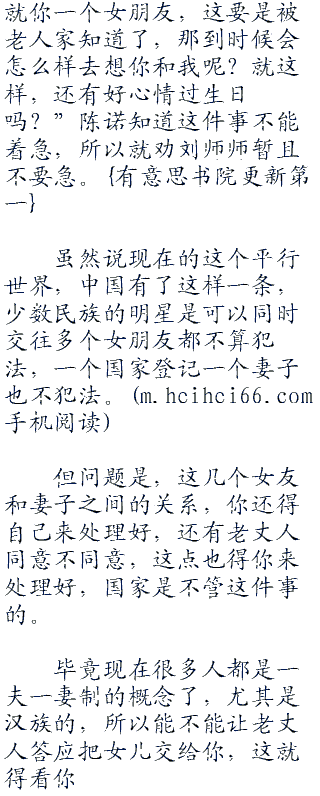 就你一个女朋友，这要是被
老人家知道了，那到时候会
怎么样去想你和我呢？就这
样，还有好心情过生日
吗？”陈诺知道这件事不能
着急，所以就劝刘师师暂且
不要急。{有意思书院更新第
一}
虽然说现在的这个平行
世界，中国有了这样一条，
少数民族的明星是可以同时
交往多个女朋友都不算犯
法，一个国家登记一个妻子
也不犯法。(m.hcihci66.com
手机阅读)
但问题是，这几个女友
和妻子之间的关系，你还得
自己来处理好，还有老丈人
同意不同意，这点也得你来
处理好，国家是不管这件事
的。
毕竟现在很多人都是一
夫一妻制的概念了，尤其是
汉族的，所以能不能让老丈
人答应把女儿交给你，这就
得看你